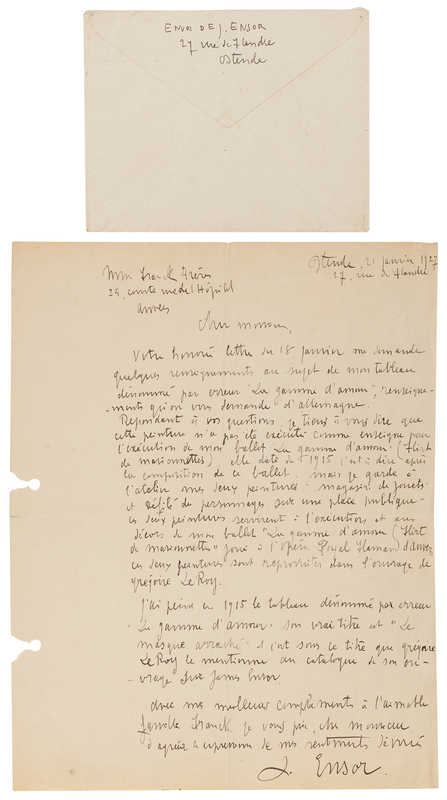 ENVOI DE J. ENSOR
27 rue de Flandre
Ostende
Ostende, 21 janvier 1927
27, rue de Flandre
Mm. Franck Frères
24, courte rue de l'Hôpital
Anvers
Cher monsieur,
Votre honorée lettre du 18 janvier me demande
quelques renseignements au sujet de mon tableau
dénommé par erreur "La gamme d'amour", renseigne-
ments qu'on vous demande d'allemagne.
Repondant à vos questions, je tiens à vous dire que
cette peinture n'a pas été exécutée comme enseigne pour
l'exécution de mon ballet La gamme d'amour (Flirt
de marionnettes), elle date de 1915 c'est à dire après
la composition de ce ballet. mais je garde à
l'atelier mes deux peintures "magasin de jouets"
et défilé de personnages sur une place publique"
ces deux peintures servirent à l'exécution et aux
décors de mon ballet "La gamme d'amour (Flirt
de marionnettes" joué à l'opéra Royal Flamand d'anvers
ces deux peintures sont reproduites dans l'ouvrage de
grégoire Le Roy.
J'ai peint en 1915 le tableau dénommé par erreur
"La gamme d'amour" son vrai titre est "Le
masque arraché" c'est sous ce titre que grégoire
Le Roy le mentionne au catalogue de son ou-
vrage sur James Ensor.
avec mes meilleurs compliments à l'aimable
famille Franck je vous prie, cher monsieur
d'agréer l'expression de mes sentiments dévoués
J. Ensor.